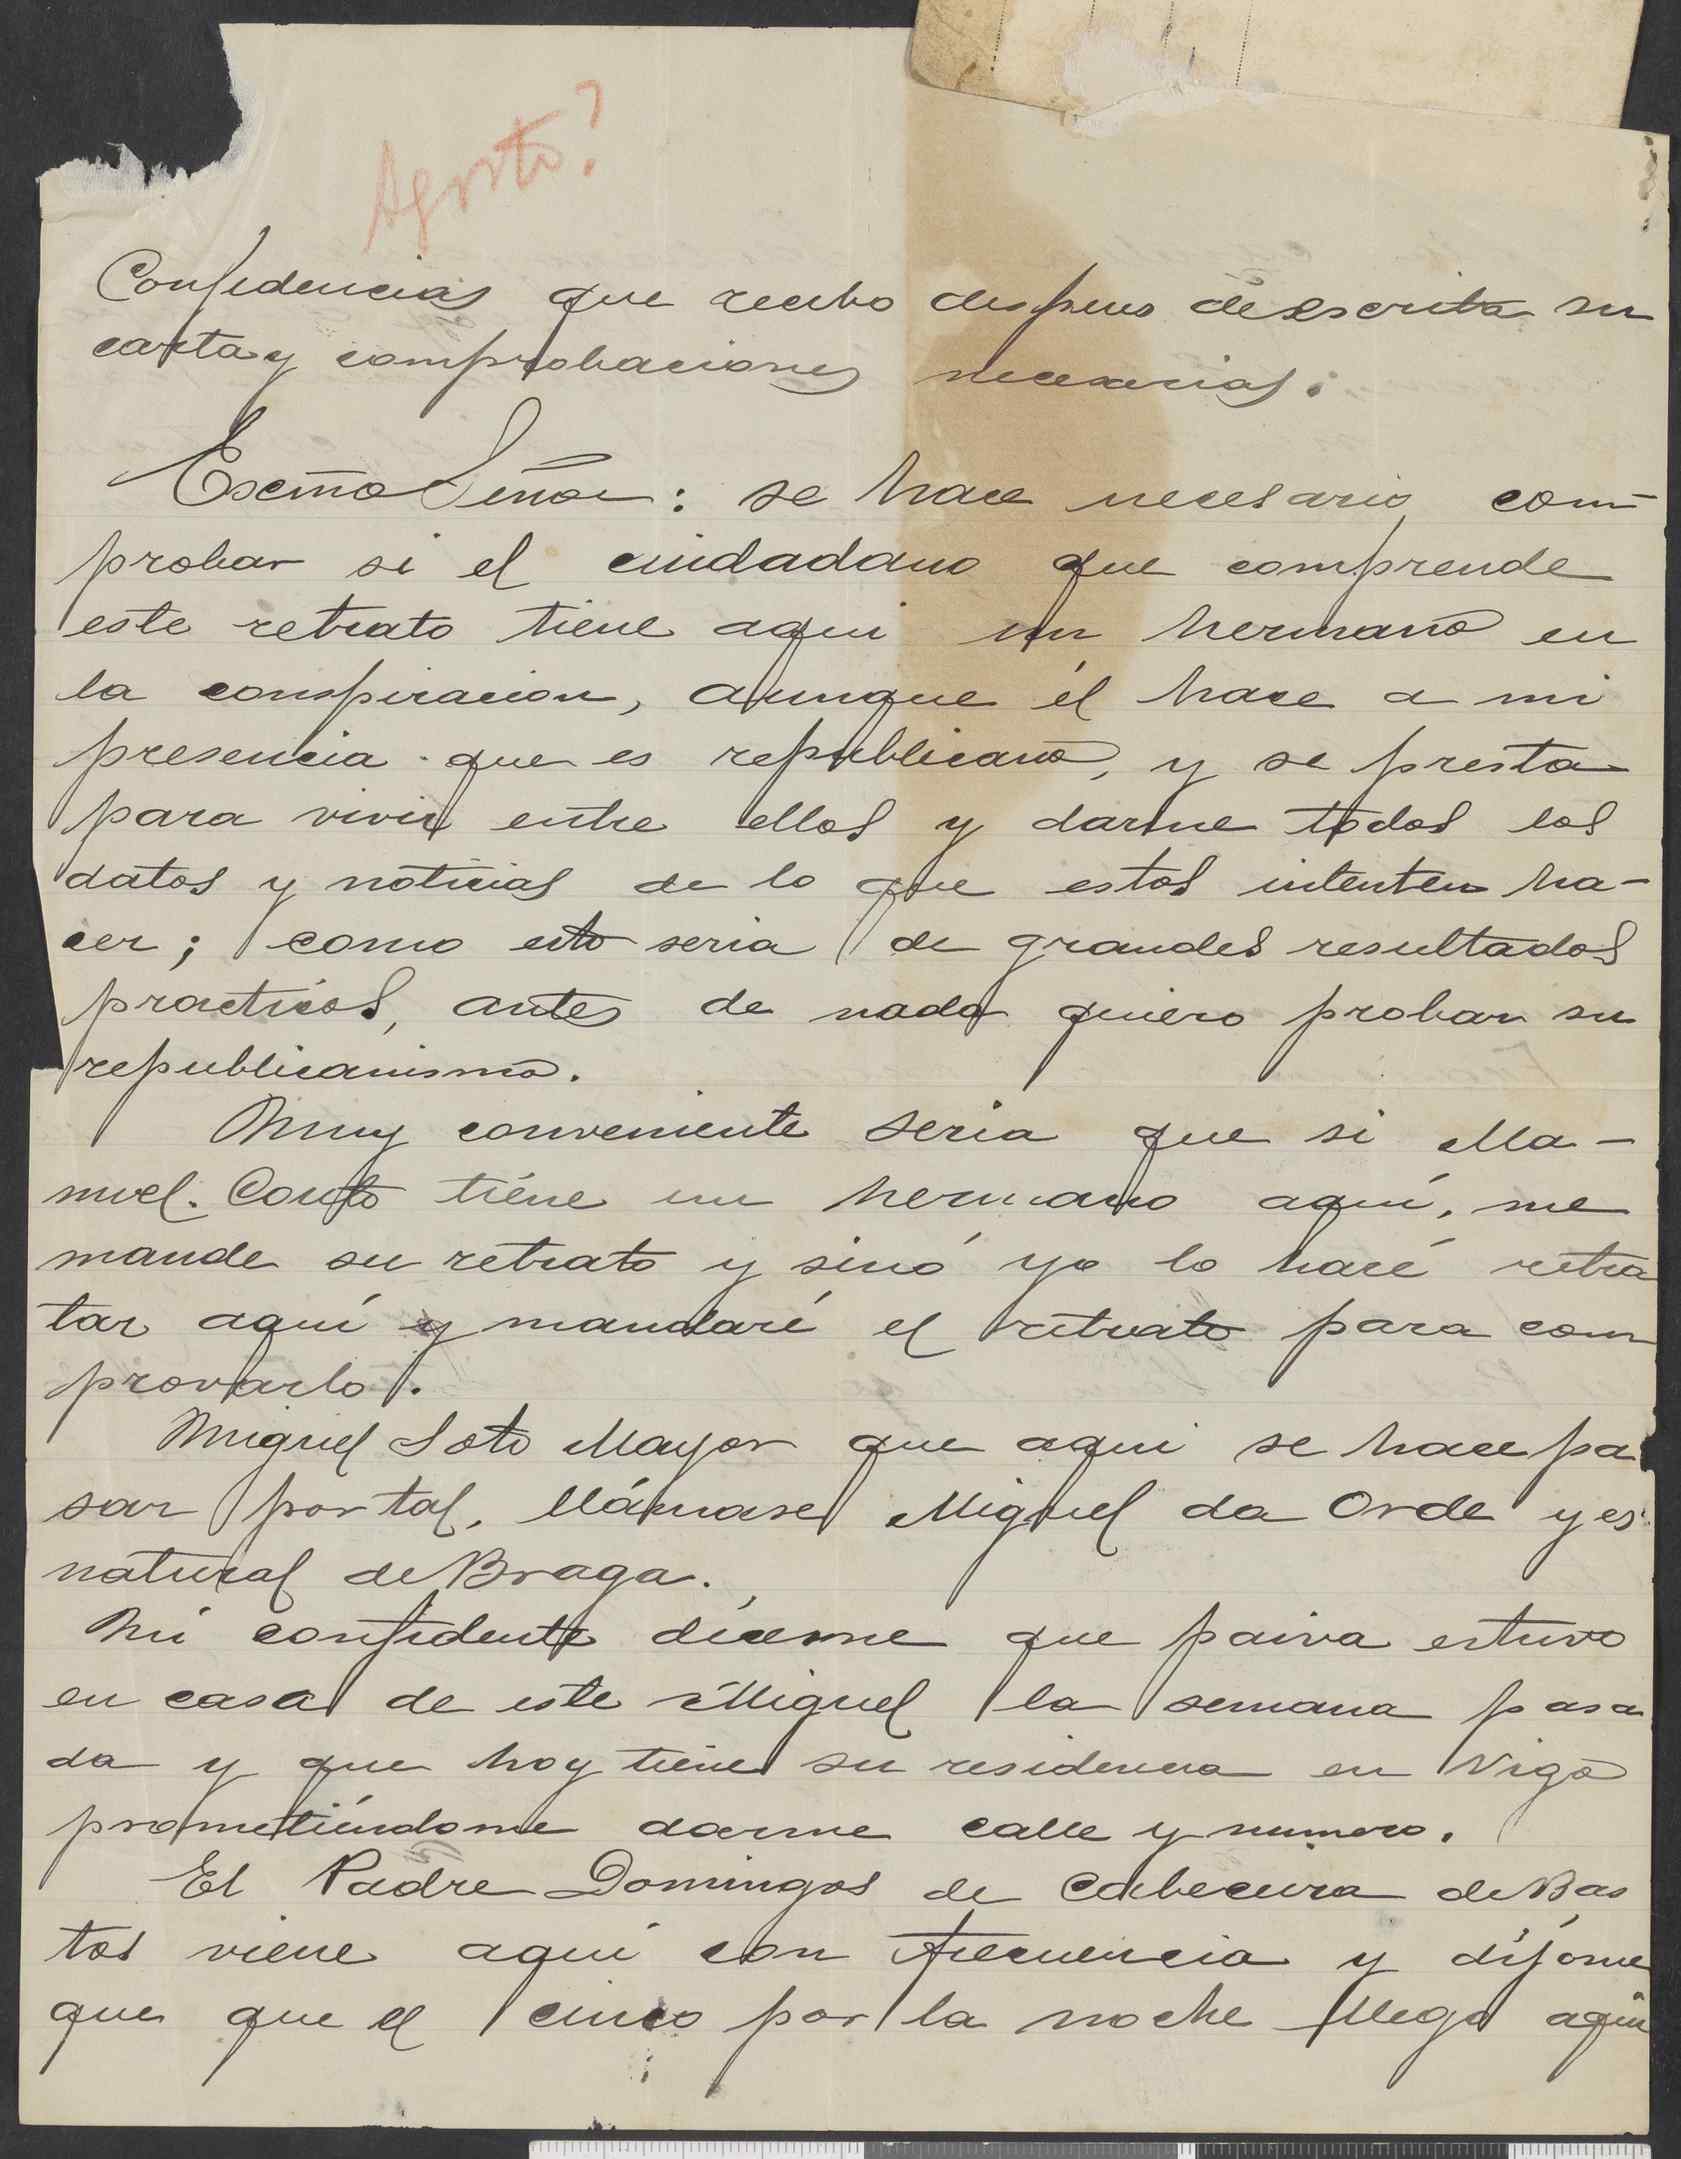 Agosto?
Confidencias que recibo despues de escrita su
carta y comprobaciones necesarias:
Excmo Señor: se hace necesario com-
probar si el ciudadano que comprende
este retrato tiene aqui un hermano en
la conspiracion, aunque él hace a mi
presencia que es republicano, y se presta
para vivir entre ellos y darme todos los
datos y noticias de lo que estos intenten ha-
cer; como esto seria de grandes resultados
practicos, antes de nada quiero probar su
republicanismo.
Muy conveniente seria que si Ma-
nuel Couto tiene un hermano aquí, me
mande su retrato y sinó yo lo haré retra
tar aquí y mandaré el retrato para com
provarlo.
Miguel Soto Mayor que aqui se hace pa
sar por tal, llámase Miguel da Orde y es
natural de Braga.
Mi confidente díceme que paiva estuvo
en casa de este Miguel la semana pasa
da y que hoy tiene su residencia en Vigo
prometiéndome darme calle y numero.
El Padre Domingos de Cabeceira de Bas
tos viene aquí con frecuencia y díjome
que que el cinco por la noche llega aquí